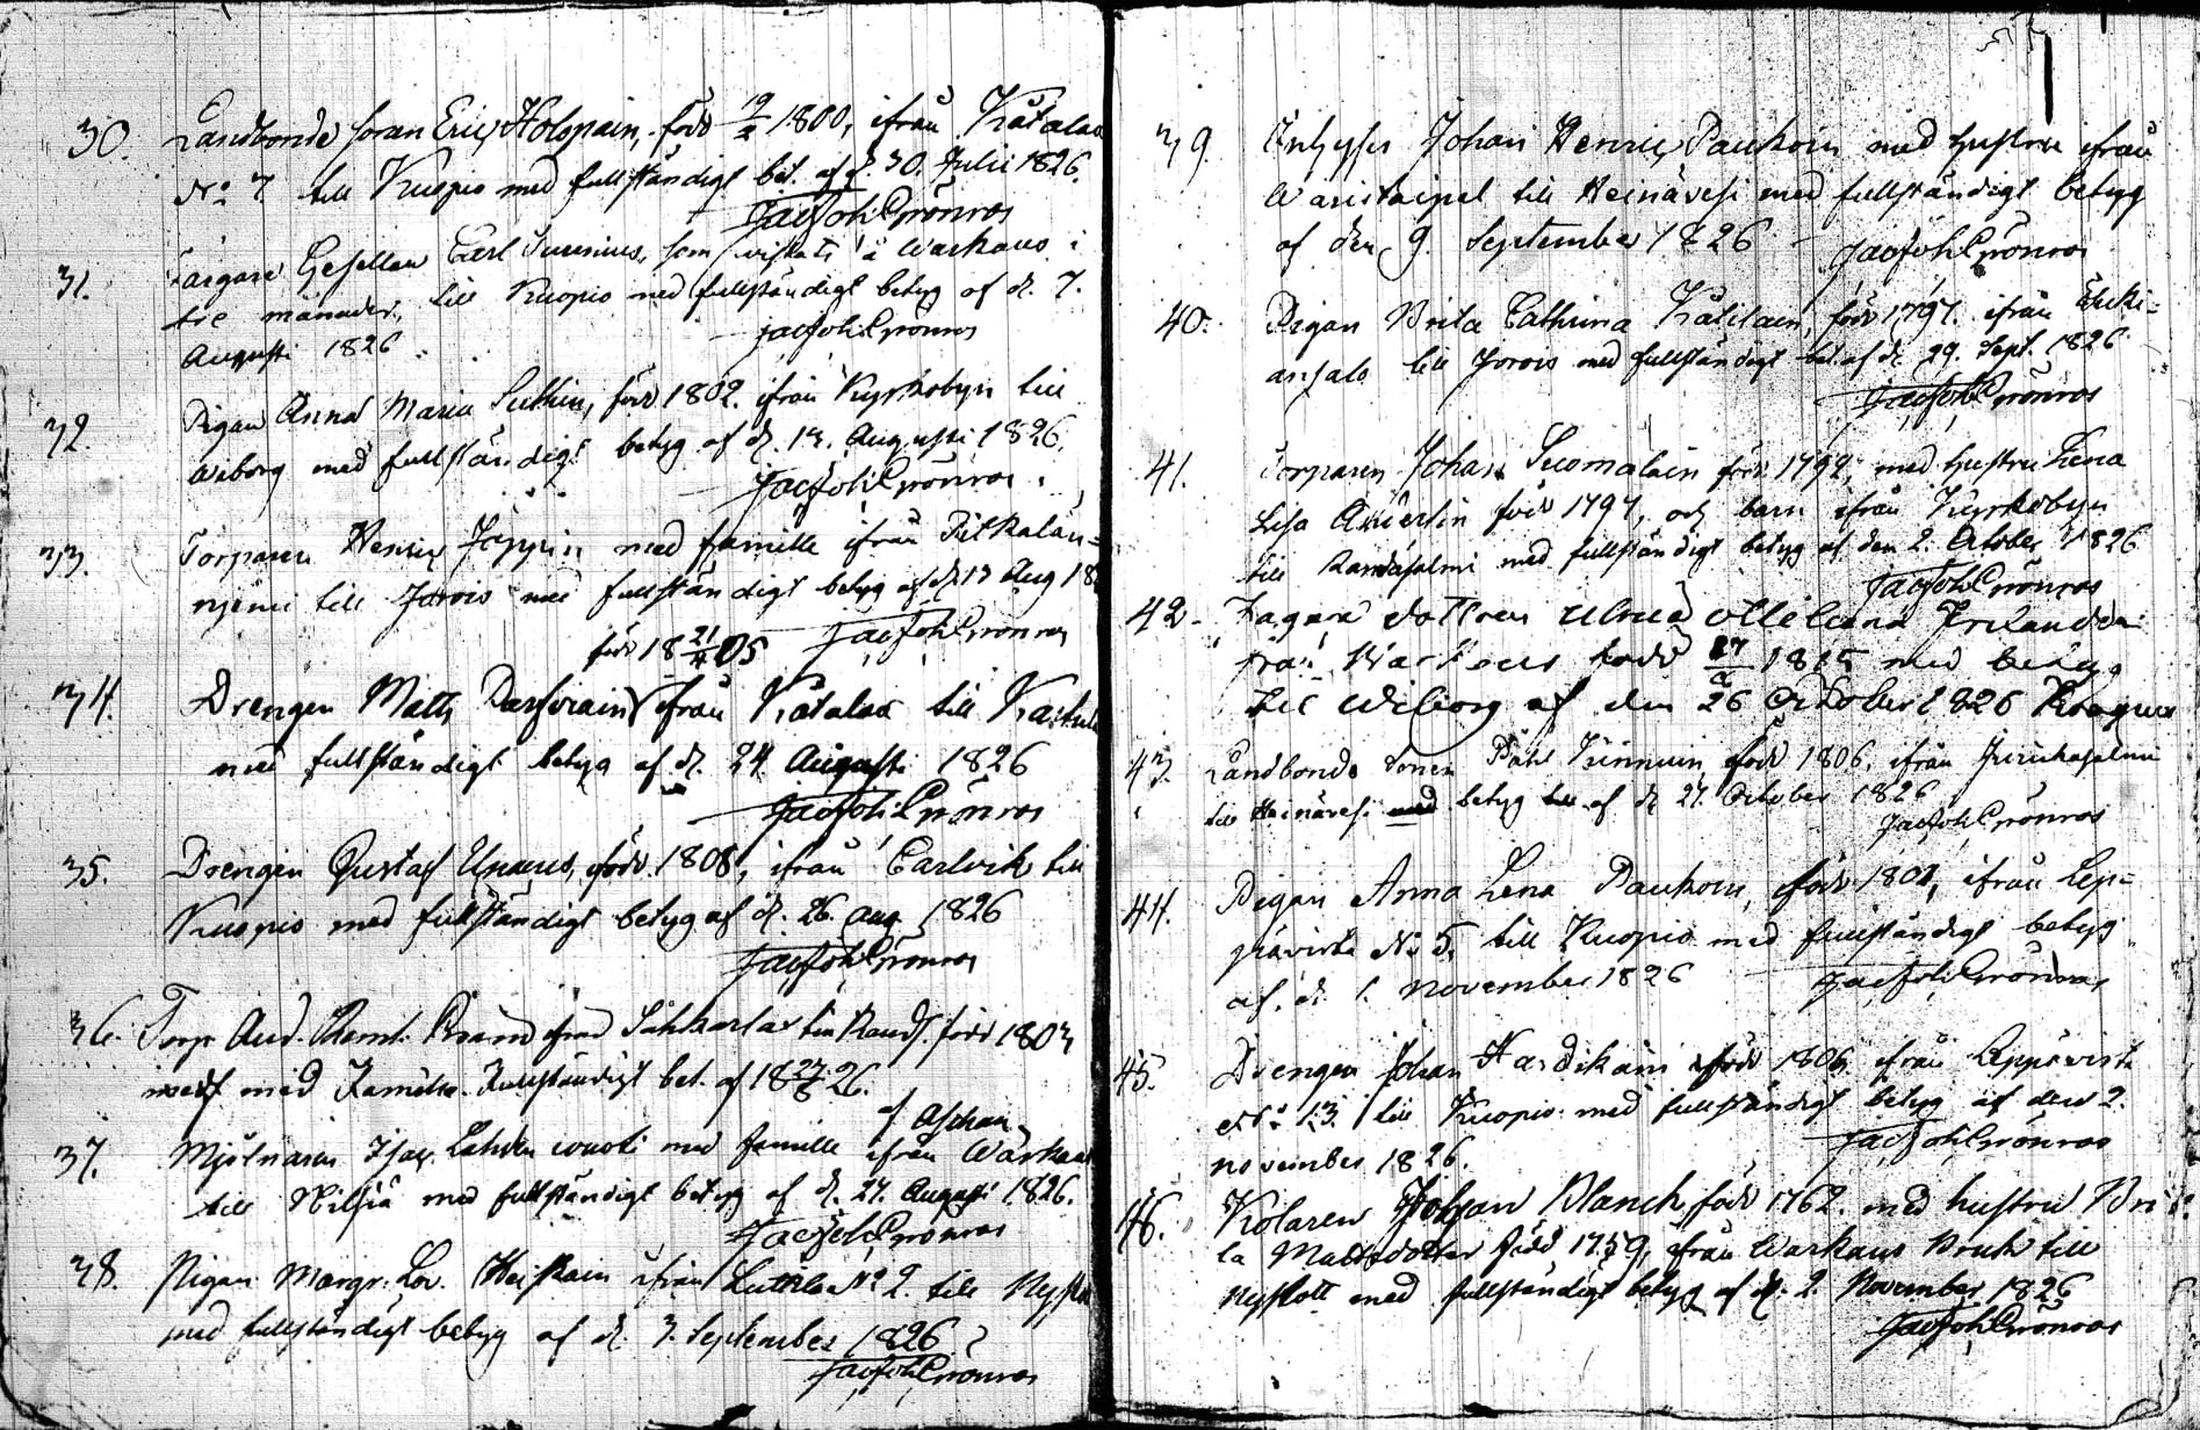 30. Landbonde sonan Eric Holopain, född 19/2 1800, ifrån Kåtalax
No 7 till Kuopio med fullständigt bet. af d. 30. Julii 1826.
Jac Joh Grönros
31. Färgare Gesellen Carl Junnius, som vistats å Warkaus i
tre månader, till Kuopio med fullständigt betyg af d. 7.
Augusti 1826
Jac Joh Grönros
32. Pigan Anna Maria Suthin, född 1802. ifrån Kyrkobyn till
Wiborg med fullständigt betyg af d. 13. Augusti 1826.
Jac Joh Grönros
33. Torparen Henric Jäppin med famille ifrån Pitkälän=
njemi till Jorois med fullständigt betyg af d. 13 Aug 18
född 18 21/4 05 Jac Joh Grönros
34. Drengen Matts Parfviain ifrån Kåtalax till
med fullständigt betyg af d. 24 Augusti 1826
Jac Joh Grönros
35. Drengen Gustaf Unaeus, född 1808, ifrån Carlvik till
Kuopio med fullständigt betyg af d. 26. Aug 1826
Jac Joh Grönros
36. Torp And. ifrån till Rand. född 1803
med Famille. Fullständigt bet. af 18 27/8 26.
37. Mjölnaren Isac Lahden wuoti med famille ifrån Warkaus
till Nilsiä med fullständigt betyg af d. 27. Augusti 1826.
Jac Joh Grönros
38. Pigan Margr. Lov. Heiskain ifrån Luttila No 2. till Nyslo
med fullständigt betyg af d. 3. September 1826
Jac Joh Grönros
39. Inhyses Johan Henric Paukoin med hustru ifrån
Waristaipal till Heinävesi med fullständigt betyg
af den 9. September 1826 Jac Joh Grönros
40. Pigan Brita Cathrina Kätilain, född 1797. ifrån Tuki=
ansalo till Jorois med fullständigt bet. af d. 29. Sept. 1826
Jac Joh Grönros
41. Torparen Johan Suomalain född 1792, med hustru Lena
Lisa född 1797, och barn ifrån Kyrkobyn
till Randasalmi med fullständigt betyg af den 2. October 1826
Jac Joh Grönros
42. dottren Ulrica
från Warkaus född 1805 med betyg
till Wiborg af den 26 October 1826
43. Landbonde Sonen Påhl Kinnuin, född 1806, ifrån
till Heinävesi med betyg af d. 27. October 1826
Jac Joh Grönros
44. Pigan Anna Lena Paukoin, född 1801, ifrån Lep=
pävirta No 5, till Kuopio med fullständigt betyg
af d. 1. November 1826 Jac Joh Grönros
45. Drengen Johan Hardikain född 1806. ifrån Leppävirta
No 13. till Kuopio med fullständigt betyg af den 2.
November 1826. Jac Joh Grönros
46. Kolaren Johan Blanck född 1762. med hustru Bri=
ta Mattsdotter född 1759, ifrån Warkaus Bruk till
Nyslott med fullständigt betyg af d. 2. November 1826
Jac Joh Grönros